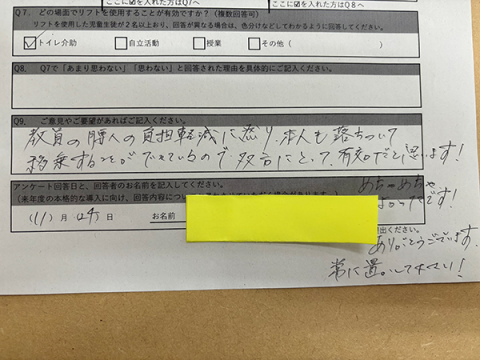 ここに☑を入れた方はQ7へ
ここに☑を入れた方はQ8へ
Q7. どの場面でリフトを使用することが有効ですか?(複数回答可)
リフトを使用した児童生徒が2名以上おり、回答が異なる場合は、色分けなどしてわかるように回答してください。
☑トイレ介助 □自立活動 □授業 □その他( )
Q8. Q7で「あまり思わない」「思わない」と回答された理由を具体的にご記入ください。
Q9. ご意見やご要望があればご記入ください。
教員の腰への負担軽減に繋り、本人も落ちついて
移乗することができているので、双方にとって、有効だと思います!
アンケート回答日と、回答者のお名前を記入してください。
(来年度の本格的な導入に向け、回答内容につい
めちゃめちゃ
よかったです!
(11)月 24日 お名前
出ください。
ありがとうございます。
常に置いして下さい!